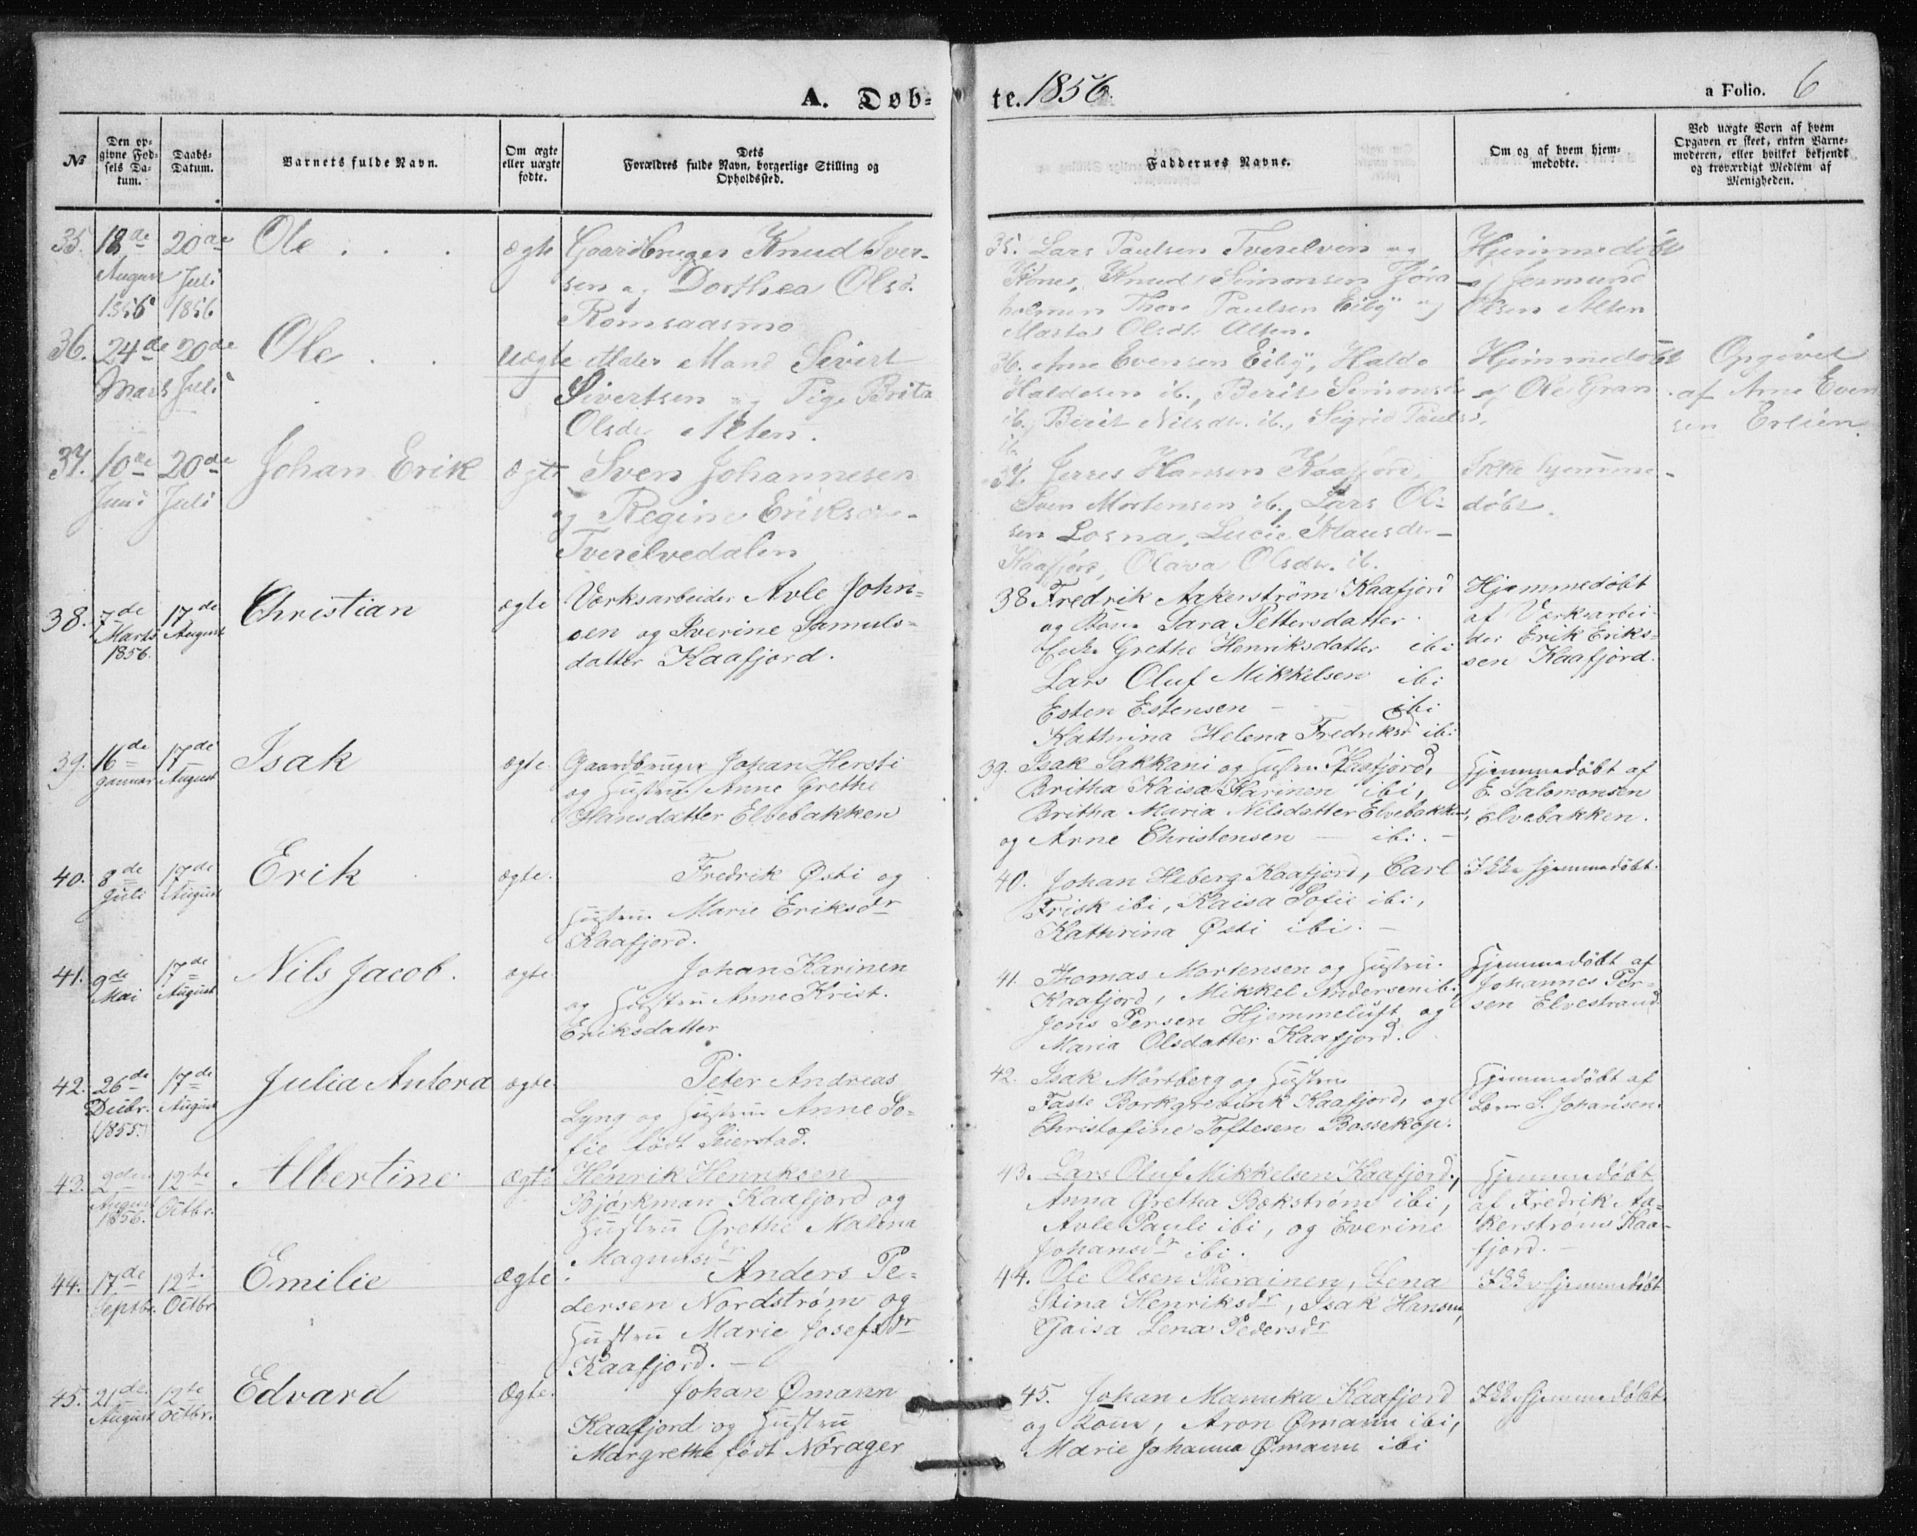 A. Døb-
te. 1856.
a Folio. 6
No
Den op-
givne Fød-
sels Da-
tum.
Daabs-
Datum.
Barnets fulde Navn.
Om ægte
eller uægte
fødte.
Dets
Forældres fulde Navn, borgerlige Stilling og
Opholdssted.
Faddernes Navne.
Om og af hvem hjem-
medøbte.
Ved uægte Børn af hvem
Opgaven er skeet, enten Barne-
moderen, eller hvilket bekjendt
og troværdigt Medlem af
Menigheden.
35. 18de August 1856 20de Juli 1856
Ole
ægte
Gaardbruger Knud Iver-
sen og Dorthea Olsd.
Romsaasmo
35. Lars Paulsen Tverelven og
Kone, Knud Simonsen Jøra-
holmen Thore Paulsen Eiby og
Olsdr. Alten.
Hjemmedøbt
af
Olsen Alten
36. 24de Marts 20de Juli
Ole
uægte
Mand Sivert
Sivertsen og Pige Brita
Olsdr. Alten.
36. Arne Evensen Eiby, Halde
Haldesen ib., Berit Simonsdr
ib., Berit Nilsdr. ib., Sigrid Paulsd.
ib.
Hjemmedøbt
af Ole Gran
Opgivet
af Arne Even
sen
37. 10de Juni 20de Juli
Johan Erik
ægte
Sven Johannesen
og Regine Eriksdr.
Tverelvedalen
37. Hansen Kaafjord,
Sven Mortensen ib., Lars Ol-
sen Losna, Lucie Klausdr.
Kaafjord, Olava Olsdr. ib.
Ikke hjemme-
døbt.
38. 7de Marts 1856. 17de August
Christian
ægte
Værksarbeider Avle John-
sen og Iverine Samuls-
datter Kaafjord.
38 Fredrik Aakerstrøm Kaafjord
og Kone Sara Pettersdatter
Grethe Henriksdatter ibi
Lars Oluf Mikkelsen ibi
Esten Estensen - ibi
Kathrina Helena Fredriksd ibi
Hjemmedøbt
af Værksarbei-
der Erik Eriks-
sen Kaafjord.
39. 16de Januar 17de August
Isak
ægte.
Gaardbruger Johan Hersti
og Hustru Anne Grethe
Hansdatter Elvebakken
39. Isak Lakkani og Hustru Kaafjord,
Britha Kaisa Karinen ibi,
Britha Maria Nilsdatter Elvebakken,
og Arne Christensen - ibi. -
Hjemmedøbt af
E. Salomonsen
Elvebakken.
40. 8de Juli 17de August
Erik
ægte.
Fredrik Østi og
Hustru Marie Eriksdr
Kaafjord.
40. Johan Heberg Kaafjord, Carl
Frisk ibi, Kaisa Sofie ibi,
Kathrina Østi ibi. -
Ikke hjemmedøbt.
41. 9de Mai 17de August
Nils Jacob.
ægte
Johan Karinen
og Hustru Anne Krist.
Eriksdatter
41. Thomas Mortensen og Hustru
Kaafjord, Mikkel Andersen ibi,
Jens Persen Hjemmeluft og
Maria Olsdatter Kaafjord.
Hjemmedøbt af
Johannes Per-
sen Elvestrand
42. 26de Decbr. 1855. 17de August
Julia Antora
ægte
Peter Andreas
Lyng og Hustru Anne So-
fie født Seierstad.
42. Isak Mørtberg og Hustru
Faste Borkgrevink Kaafjord, og
Christofine Toftesen Bossekop.
Hjemmedøbt af
S. Johansen.
43. 2den August 1856. 12te Octbr.
Albertine
Ægte
Henrik Henriksen
Bjørkman Kaafjord og
Hustru Grethe Malena
Magnusdr
43. Lars Oluf Mikkelsen Kaafjord,
Anna Gretha Bækstrøm ibi,
Avle Pauli ibi, og Everine
Johansdr ibi.
Hjemmedøbt
af Fredrik Aa-
kerstrøm Kaa-
fjord. -
44. 17de Septbr. 12te Octbr.
Emilie
Ægte.
Anders Pe-
dersen Nordstrøm og
Hustru Marie Josefsdr
Kaafjord. -
44. Ole Olsen Purainen, Lena
Stina Henriksdr, Isak Hansen,
Gaisa Lena Pedersdr
Ikke hjemmedøbt
45. 21de August 12te Octbr.
Edvard
Ægte.
Johan Ømann
Kaafjord og Hustru
Margrethe født Nørager
45. Johan Mamuka Kaafjord
og Kone, Aron Ømann ibi,
Marie Johanna Ømann ibi
Ikke hjemmedøbt.